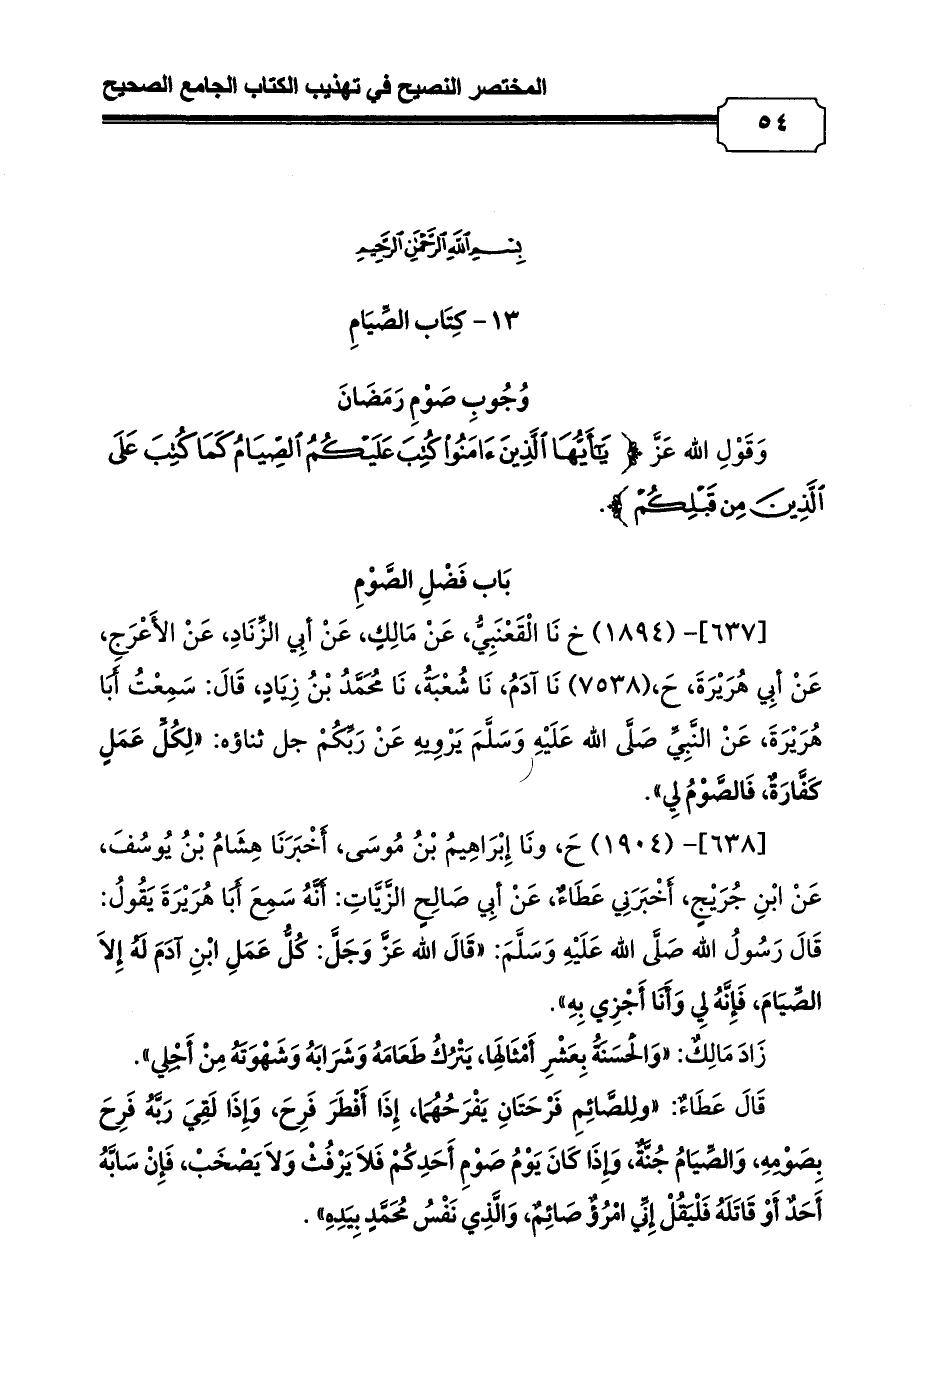 المختصر النصيح في تهذيب الكتاب الجامع الصحيح
٥٤
بِسْمِ اللَّهِ الرَّحْمَٰنِ الرَّحِيمِ
١٣- كِتَاب الصِّيَامِ
وُجُوبِ صَوْمِ رَمَضَانَ
وَقَوْلِ الله عَزَّ ﴿ يَٰٓأَيُّهَا ٱلَّذِينَ ءَامَنُوا۟ كُتِبَ عَلَيْكُمُ ٱلصِّيَامُ كَمَا كُتِبَ عَلَى
ٱلَّذِينَ مِن قَبْلِكُمْ ﴾.
بَاب فَضْلِ الصَّوْمِ
[٦٣٧]- (١٨٩٤) خ نَا الْقَعْنَبِيُّ، عَنْ مَالِكٍ، عَنْ أبِي الزِّنَادِ، عَنْ الأَعْرَجِ،
عَنْ أبِي هُرَيْرَةَ، حَ،(٧٥٣٨) نَا آدَمُ، نَا شُعْبَةُ، نَا مُحَمَّدُ بْنُ زِيَادٍ، قَالَ: سَمِعْتُ أَبَا
هُرَيْرَةَ، عَنْ النَّبِيِّ صَلَّى الله عَلَيْهِ وَسَلَّمَ يَرْوِيهِ عَنْ رَبِّكُمْ جل ثناؤه: «لِكُلِّ عَمَلٍ
كَفَّارَةٌ، فَالصَّوْمُ لِي».
[٦٣٨]- (١٩٠٤) حَ، ونَا إِبْرَاهِيمُ بْنُ مُوسَى، أَخْبَرَنَا هِشَامُ بْنُ يُوسُفَ،
عَنْ ابْنِ جُرَيْجٍ، أَخْبَرَنِي عَطَاءٌ، عَنْ أبِي صَالِحٍ الزَّيَّاتِ: أَنَّهُ سَمِعَ أَبَا هُرَيْرَةَ يَقُولُ:
قَالَ رَسُولُ الله صَلَّى الله عَلَيْهِ وَسَلَّمَ: «قَالَ الله عَزَّ وَجَلَّ: كُلُّ عَمَلِ ابْنِ آدَمَ لَهُ إِلاَ
الصِّيَامَ، فَإِنَّهُ لِي وَأَنَا أَجْزِي بِهِ».
زَادَ مَالِكٌ: «وَالْحَسَنَةُ بِعَشْرِ أَمْثَالِهَا، يَتْرُكُ طَعَامَهُ وَشَرَابَهُ وَشَهْوَتَهُ مِنْ أَجْلِي».
قَالَ عَطَاءٌ: «وِللصَّائِمِ فَرْحَتَانِ يَفْرَحُهُمَا، إِذَا أَفْطَرَ فَرِحَ، وَإِذَا لَقِيَ رَبَّهُ فَرِحَ
بِصَوْمِهِ، وَالصِّيَامُ جُنَّةٌ، وَإِذَا كَانَ يَوْمُ صَوْمِ أَحَدِكُمْ فَلاَ يَرْفُثْ وَلاَ يَصْخَبْ، فَإِنْ سَابَّهُ
أَحَدٌ أَوْ قَاتَلَهُ فَلْيَقُلْ إِنِّي امْرُؤٌ صَائِمٌ، وَالَّذِي نَفْسُ مُحَمَّدٍ بِيَدِهِ» .